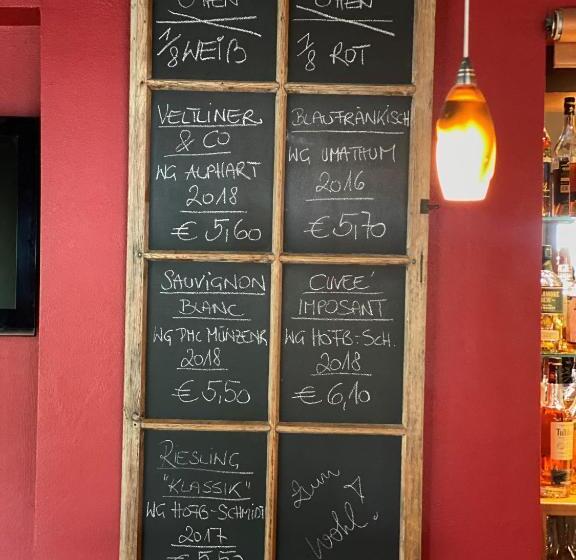 OFFEN
1/8 WEIß
OFFEN
1/8 ROT
VELTLINER
& CO
WG ALPHART
2018
€ 5,60
BLAUFRÄNKISCH
WG UMATHUM
2016
€ 5,70
SAUVIGNON
BLANC
WG PHL MÜNZENR
2018
€ 5,50
CUVEE'
IMPOSANT
WG HOFB-SCH.
2018
€ 6,10
RIESLING
"KLASSIK"
WG HOFB-SCHMIDT
2017
€ 5,50
Zum
Wohl!